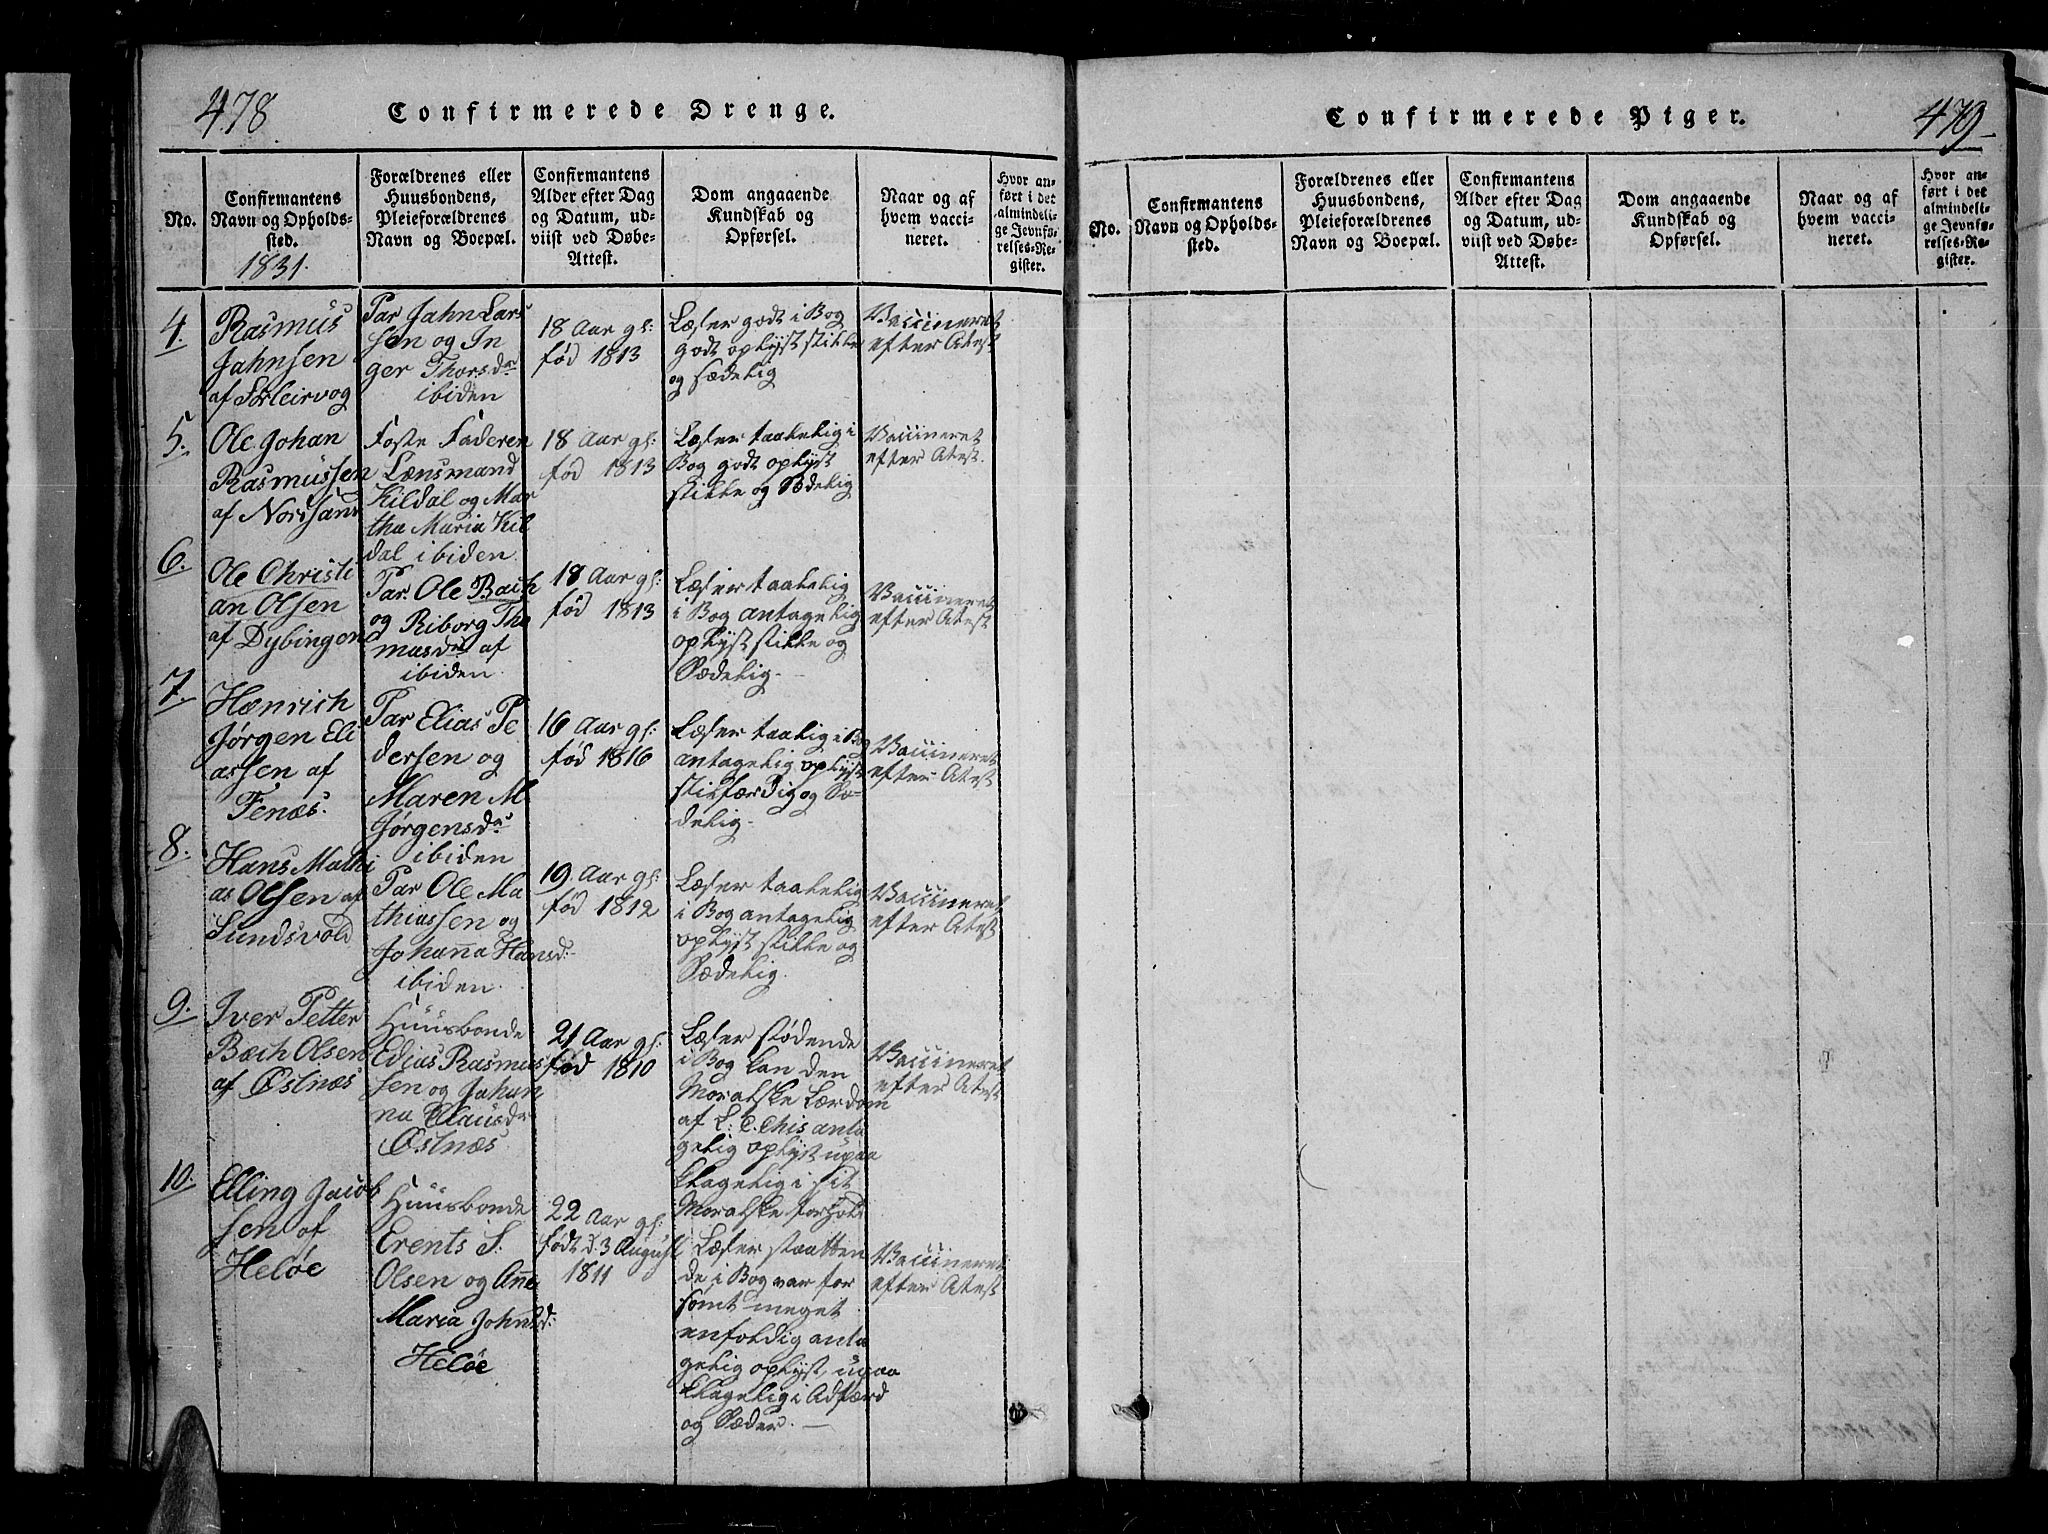 478
Confirmerede Drenge.
No.
Confirmantens
Navn og Opholds-
sted.
1831.
Forældrenes eller
Huusbondens,
Pleieforældrenes
Navn og Boepæl.
Confirmantens
Alder efter Dag
og Datum, ud-
viist ved Døbe-
Attest.
Dom angaaende
Kundskab og
Opførsel.
Naar og af
hvem vacci-
neret.
Hvor an-
ført i det
almindeli-
ge Jevnfø-
relses-Re-
gister.
4.
Rasmus
Jahnsen
af
Par Jahn Lars
sen og In
ger Thorsdr
ibiden
18 Aar gl:
fød 1813
Læser godt i Bog
godt oplyst stille
og sædelig
Vaccineret
efter Atest
5.
Ole Johan
Rasmussen
af
Foste Faderen
Lænsmand
Kildal og Mar
tha Maria Kil
dal ibiden
18 Aar gl:
fød 1813
Læser taalelig i
Bog godt oplyst
stille og Sædelig
Vaccineret
efter Atest.
6.
Ole Christi
an Olsen
af Dybingen
Par Ole Bach
og Riborg Tho
masdr af
ibiden
18 Aar gl:
fød 1813
Læser taalelig
i Bog antagelig
oplyst stille og
Sædelig.
Vaccineret
efter Atest
7.
Henrich
Jørgen Eli
assen af
Fenæs.
Par Elias Pe
dersen og
Maren M
Jørgensdr
ibiden
16 Aar gl:
fød 1816
Læser taalig i Bog
antagelig oplyst
stilfærdig og Sæ-
delig.
Vaccineret
efter Atest
8.
Hans Mathi
as Olsen af
Sundsvold
Par Ole Ma
thiassen og
Johanna Hansd:
ibiden.
19. Aar gl:
fød 1812
Læser taalelig
i Bog antagelig
oplyst stille og
Sædelig.
Vaccineret
efter Atest
9.
Iver Petter
Bach Olsen
af Østnæs
Huusbonde
Edias Rasmus
sen og Johan
na Clausdr
Østnæs.
21 Aar gl:
fød 1810
Læser stødende
i Bog kan den
Moralske Lærdom
af L: C.this anta
gelig oplyst upaa
klagelig i sit
Moralske forhold
Vaccineret
efter Atest
10.
Elling Jacob
sen af
Heløe
Huusbonde
Erents S:
Olsen og Ane
Maria Johnsd:
Heløe
22 Aar gl:
født d: 3 August
1811
Læser staatten
de i Bog var for
somt meget
enfoldig anta
gelig oplyst, upaa
klagelig i Adfærd
og Sæder.
Vaccineret
efter Atest
Confirmerede Piger.
479
No.
Confirmantens
Navn og Opholds-
sted.
Forældrenes eller
Huusbondens,
Pleieforældrenes
Navn og Boepæl.
Confirmantens
Alder efter Dag
og Datum, ud-
viist ved Døbe-
Attest.
Dom angaaende
Kundskab og
Opførsel.
Naar og af
hvem vacci-
neret.
Hvor an-
ført i det
almindeli-
ge Jevnfø-
relses-Re-
gister.